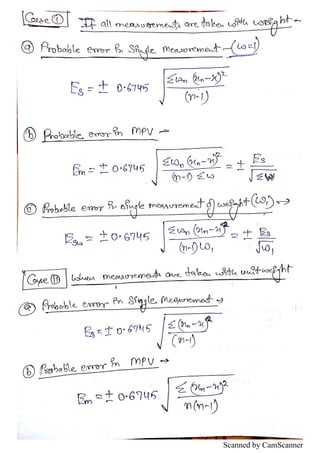 Case ① If all measurements are taken with weight -
ⓐ Probable error in Single measurement - (ω=1)
Es = ± 0.6745 √(Σωn (xn-x)² / (n-1))
ⓑ Probable error in MPV -
Em = ± 0.6745 √(Σωn (xn-x)² / (n-1) Σω) = ± Es / √Σω
ⓒ Probable error in single measurement of weight (ω1) →
Esω = ± 0.6745 √(Σωn (xn-x)² / (n-1) ω1) = ± Es / √ω1
Case ⑪ when measurements are taken with unit weight
ⓐ Probable error in Single Measurement →
Es = ± 0.6745 √(Σ(xn-x)² / (n-1))
ⓑ Probable error in MPV →
Em = ± 0.6745 √(Σ(xn-x)² / n(n-1))
Scanned by CamScanner